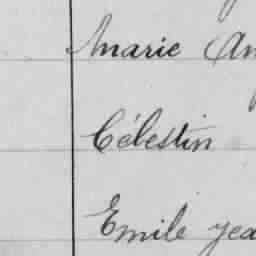 Marie An
Célestin
Emile Jea